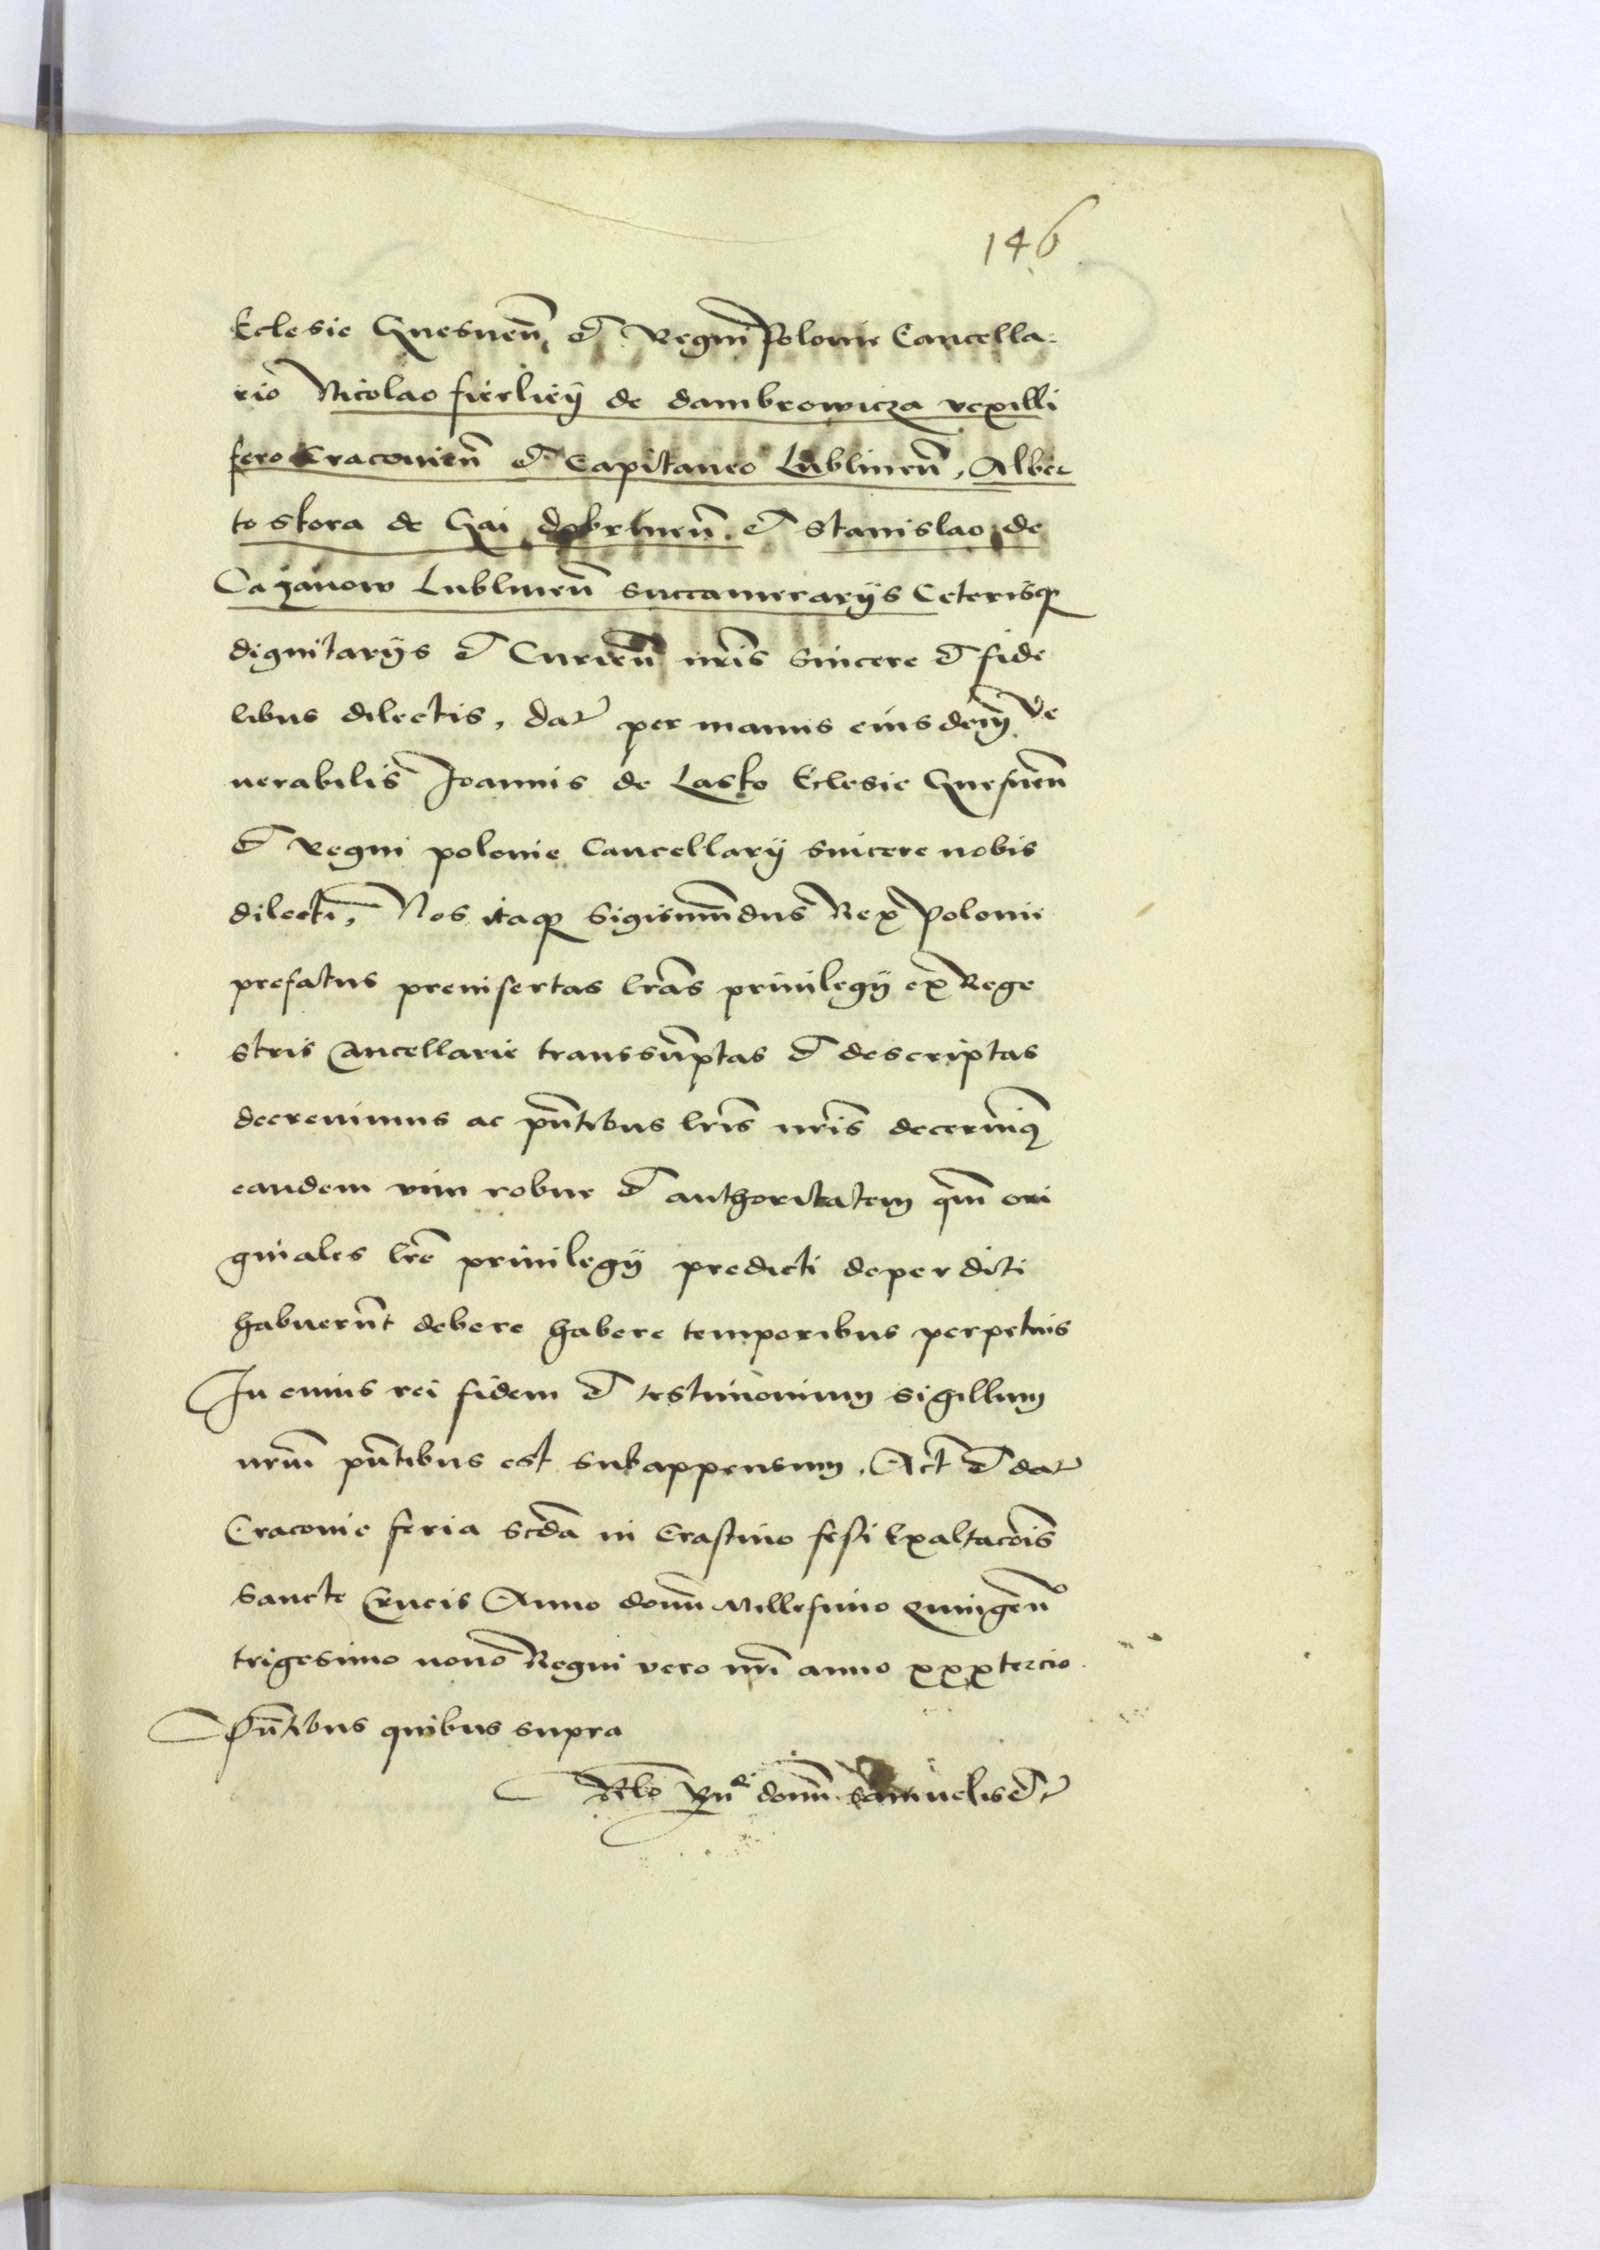 146
Eclesie Gnesnen̄ et Regni Polonie Cancella-
rio Nicolao fierlieÿ de dambrowicza vexilli
fero Cracovien̄ et Capitaneo Lublinen̄, Alber
to skora de Gai dobrinen̄ et Stanislao de
Cazanow Lublinen̄ succamerarÿs Ceterisq
dignitarÿs et Curien̄ nr̄is sincere et fide
libus dilectis, dat per manus eiusdem ve
nerabilis Joannis de Lasko Eclesie Gnesnen̄
et Regni polonie Cancellarÿ sincere nobis
dilecti, Nos itaq Sigismundus Rex Polonie
prefatus preinsertas lr̄as privilegÿ ex Rege
stris Cancellarie transsūptas et descriptas
decrevimus ac pn̄tibus lr̄is nr̄is decernimq
eandem vim robur et authoritatem qm̄ ori
ginales lr̄e privilegÿ predicti deperditi
habuerūt debere habere temporibus perpetuis
In cuius rei fidem et testimonium sigillum
nrm̄ pn̄tibus est subappensum. Act et dat
Cracovie feria scd̄a in Crastino festi Exaltacōis
Sancte Crucis Anno domī Millesimo Quingeno
trigesimo nono Regni vero nr̄i anno xxx tercio.
Pn̄tibus quibus supra
Rlo domī Samuelis et